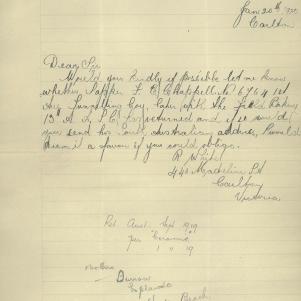 Jan 20th 1920
Carlton
Dear Sir
Would you kindly if possible let me know
whether Sapper F. C. Chappell No 6764 1st
Aus Tunnelling Coy, Later with the Field Bakery
13th A. S. C. has returned and if so would
you send his South Australian address,
is a favor if you could oblige.
R. White
440 Madeline St
Carlton
Victoria
Ret. Aust. Sept 1919
per "Ceramic"
1 " 19
Mother
Esplanade
Beach